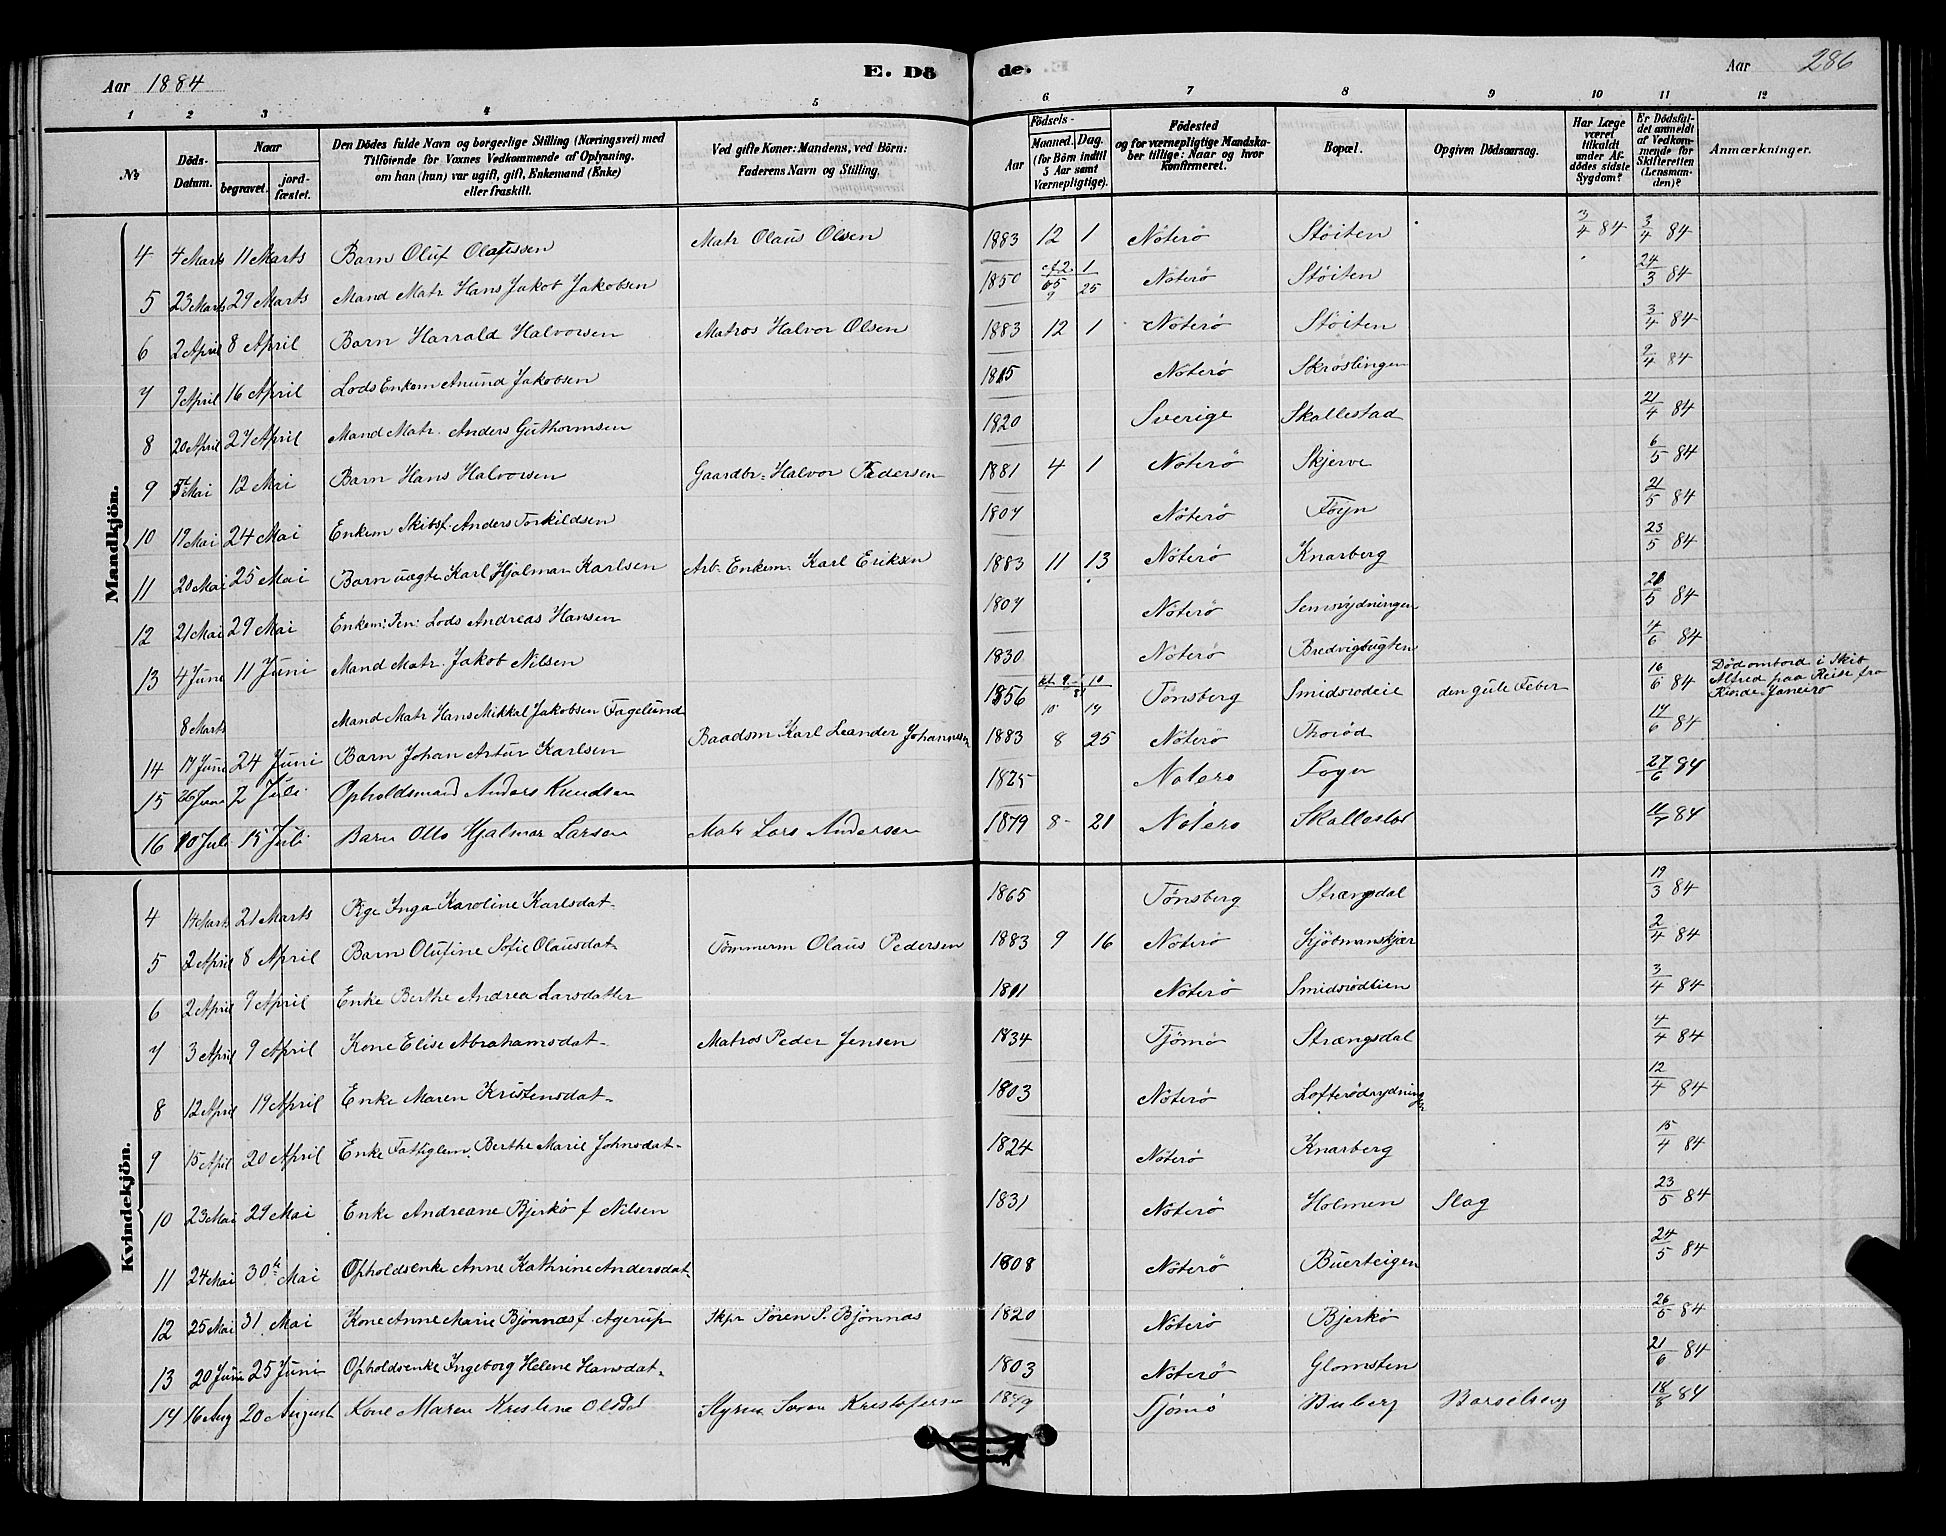 Aar 1884
E. Dö de.
Aar 286
1 2 3 4 5 6 7 8 9 10 11 12
No
Döds-Datum.
Naar
begravet. jord-fæstet.
Den Dödes fulde Navn og borgerlige Stilling (Næringsvei) med
Tilföiende for Voxnes Vedkommende af Oplysning,
om han (hun) var ugift, gift, Enkemand (Enke)
eller fraskilt.
Ved gifte Koner: Mandens, ved Börn:
Faderens Navn og Stilling.
Födsels-
Aar
Maaned. Dag.
(for Börn indtil
5 Aar samt
Værnepligtige).
Födested
og for værnepligtige Mandska-
ber tillige: Naar og hvor
konfirmeret.
Bopæl.
Opgiven Dödsaarsag.
Har Læge
været
tilkaldt
under Af-
dödes sidste
Sygdom?
Er Dödsfal-
det anmeldt
af Vedkom-
mende for
Skifteretten
(Lensman-
den)?
Anmærkninger.
Mandkjön.
4 4 Marts 11 Marts Barn Oluf Olaussen Matr Olaus Olsen 1883 12 1 Nöterö Stöiten 3/4 84 3/4 84
5 23 Marts 29 Marts Mand Matr Hans Jakob Jakobsen 1850 Nöterö Stöiten 24/3 84
6 2 April 8 April Barn Harrald Halvorsen Matros Halvor Olsen 1883 12 1 Nöterö Stöiten 3/4 84
7 9 April 16 April Lods Enkem Anund Jakobsen 1815 Nöterö Skröslingen 9/4 84
8 20 April 27 April Mand Matr. Anders Guthormsen 1820 Sverige Skallestad 21/4 84
9 5te Mai 12 Mai Barn Hans Halvorsen Gaardbr: Halvor Pedersen 1881 4 1 Nöterö Skjerve 6/5 84
10 19 Mai 24 Mai Enkem Skibsf. Anders Torkildsen 1807 Nöterö Föyn 21/5 84
11 20 Mai 25 Mai Barn uægte Karl Hjalmar Karlsen Arb. Enkem. Karl Eriksen 1883 11 13 Nöterö Knarberg 23/5 84
12 21 Mai 29 Mai Enkem: Fen: Lods Andreas Hansen 1807 Nöterö Semsrydningen 26/5 84
13 4 June 11 Juni Mand Matr. Jakob Nilsen 1830 Nöterö Bredvigbugten 4/6 84
8 Marts Mand Matr Hans Mikkal Jakobsen Fagelund 1856 Tönsberg Smidsrödeie den gule Feber 16/6 84 Död ombord i Skib
Alfred paa Reise fra
Rio de Janeiro
14 17 June 24 Juni Barn Johan Artur Karlsen Baadsm Karl Leander Johannesen 1883 8 25 Nöterö Thoröd 17/6 84
15 26 June 2 Juli Opholdsmand Anders Knudsen 1825 Nöterö Föyn 27/6 84
16 10 Juli 15 Juli Barn Otto Hjalmar Larsen Matr Lars Andersen 1879 8 21 Nöterö Skallestad 11/7 84
Kvindekjön.
4 14 Marts 21 Marts Pige Inga Karoline Karlsdat. 1865 Tönsberg Strængsdal 19/3 84
5 2 April 8 April Barn Olufine Sofie Olausdat Tömmerm Olaus Pedersen 1883 9 16 Nöterö Kjöbmanskjær 2/4 84
6 2 April 7 April Enke Berthe Andrea Larsdatter 1811 Nöterö Smidsrödlien 3/4 84
7 3 April 9 April Kone Elise Abrahamsdat. Matros Peder Jensen 1834 Tjömö Strængsdal 4/4 84
8 12 April 19 April Enke Maren Kristensdat. 1803 Nöterö Lofterödrydningen 12/4 84
9 15 April 20 April Enke Fattiglem. Berthe Marie Johnsdat. 1824 Nöterö Knarberg 15/4 84
10 23 Mai 29 Mai Enke Andreane Bjerkö f Nilsen 1831 Nöterö Holmen Slag 23/5 84
11 24 Mai 30te Mai Opholdsenke Anne Kathrine Andersdat. 1808 Nöterö Buerteigen 24/5 84
12 25 Mai 31 Mai Kone Anne Marie Bjönnæs f. Agerup Skpr Sören S. Bjönnæs 1820 Nöterö Bjerkö 26/5 84
13 20 Juni 25 Juni Opholdsenke Ingeborg Helene Hansdat. 1803 Nöterö Glomsten 21/6 84
14 16 Aug 20 August Kone Maren Kristine Olsdat Styrm Soren Kristofersen 1849 Tjömö Buberg Barselseng 18/8 84